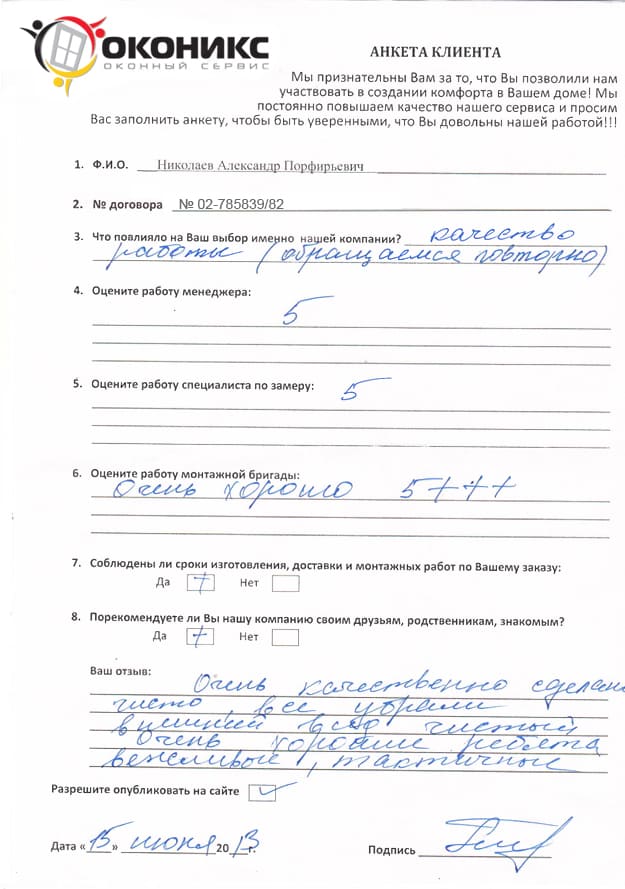 ОКОНИКС
ОКОННЫЙ СЕРВИС
АНКЕТА КЛИЕНТА
Мы признательны Вам за то, что Вы позволили нам
участвовать в создании комфорта в Вашем доме! Мы
постоянно повышаем качество нашего сервиса и просим
Вас заполнить анкету, чтобы быть уверенными, что Вы довольны нашей работой!!!
1. Ф.И.О. Николаев Александр Порфирьевич
2. № договора № 02-785839/82
3. Что повлияло на Ваш выбор именно нашей компании? качество
работы (обращаемся повторно)
4. Оцените работу менеджера:
5
5. Оцените работу специалиста по замеру: 5
6. Оцените работу монтажной бригады:
Очень хорошо 5+++
7. Соблюдены ли сроки изготовления, доставки и монтажных работ по Вашему заказу:
Да + Нет
8. Порекомендуете ли Вы нашу компанию своим друзьям, родственникам, знакомым?
Да + Нет
Ваш отзыв:
Очень качественно сделано
чисто, все убрали
внешний вид чистый
Очень хорошие ребята
вежливые, тактичные
Разрешите опубликовать на сайте ✓
Дата «15» июня 2013г. Подпись